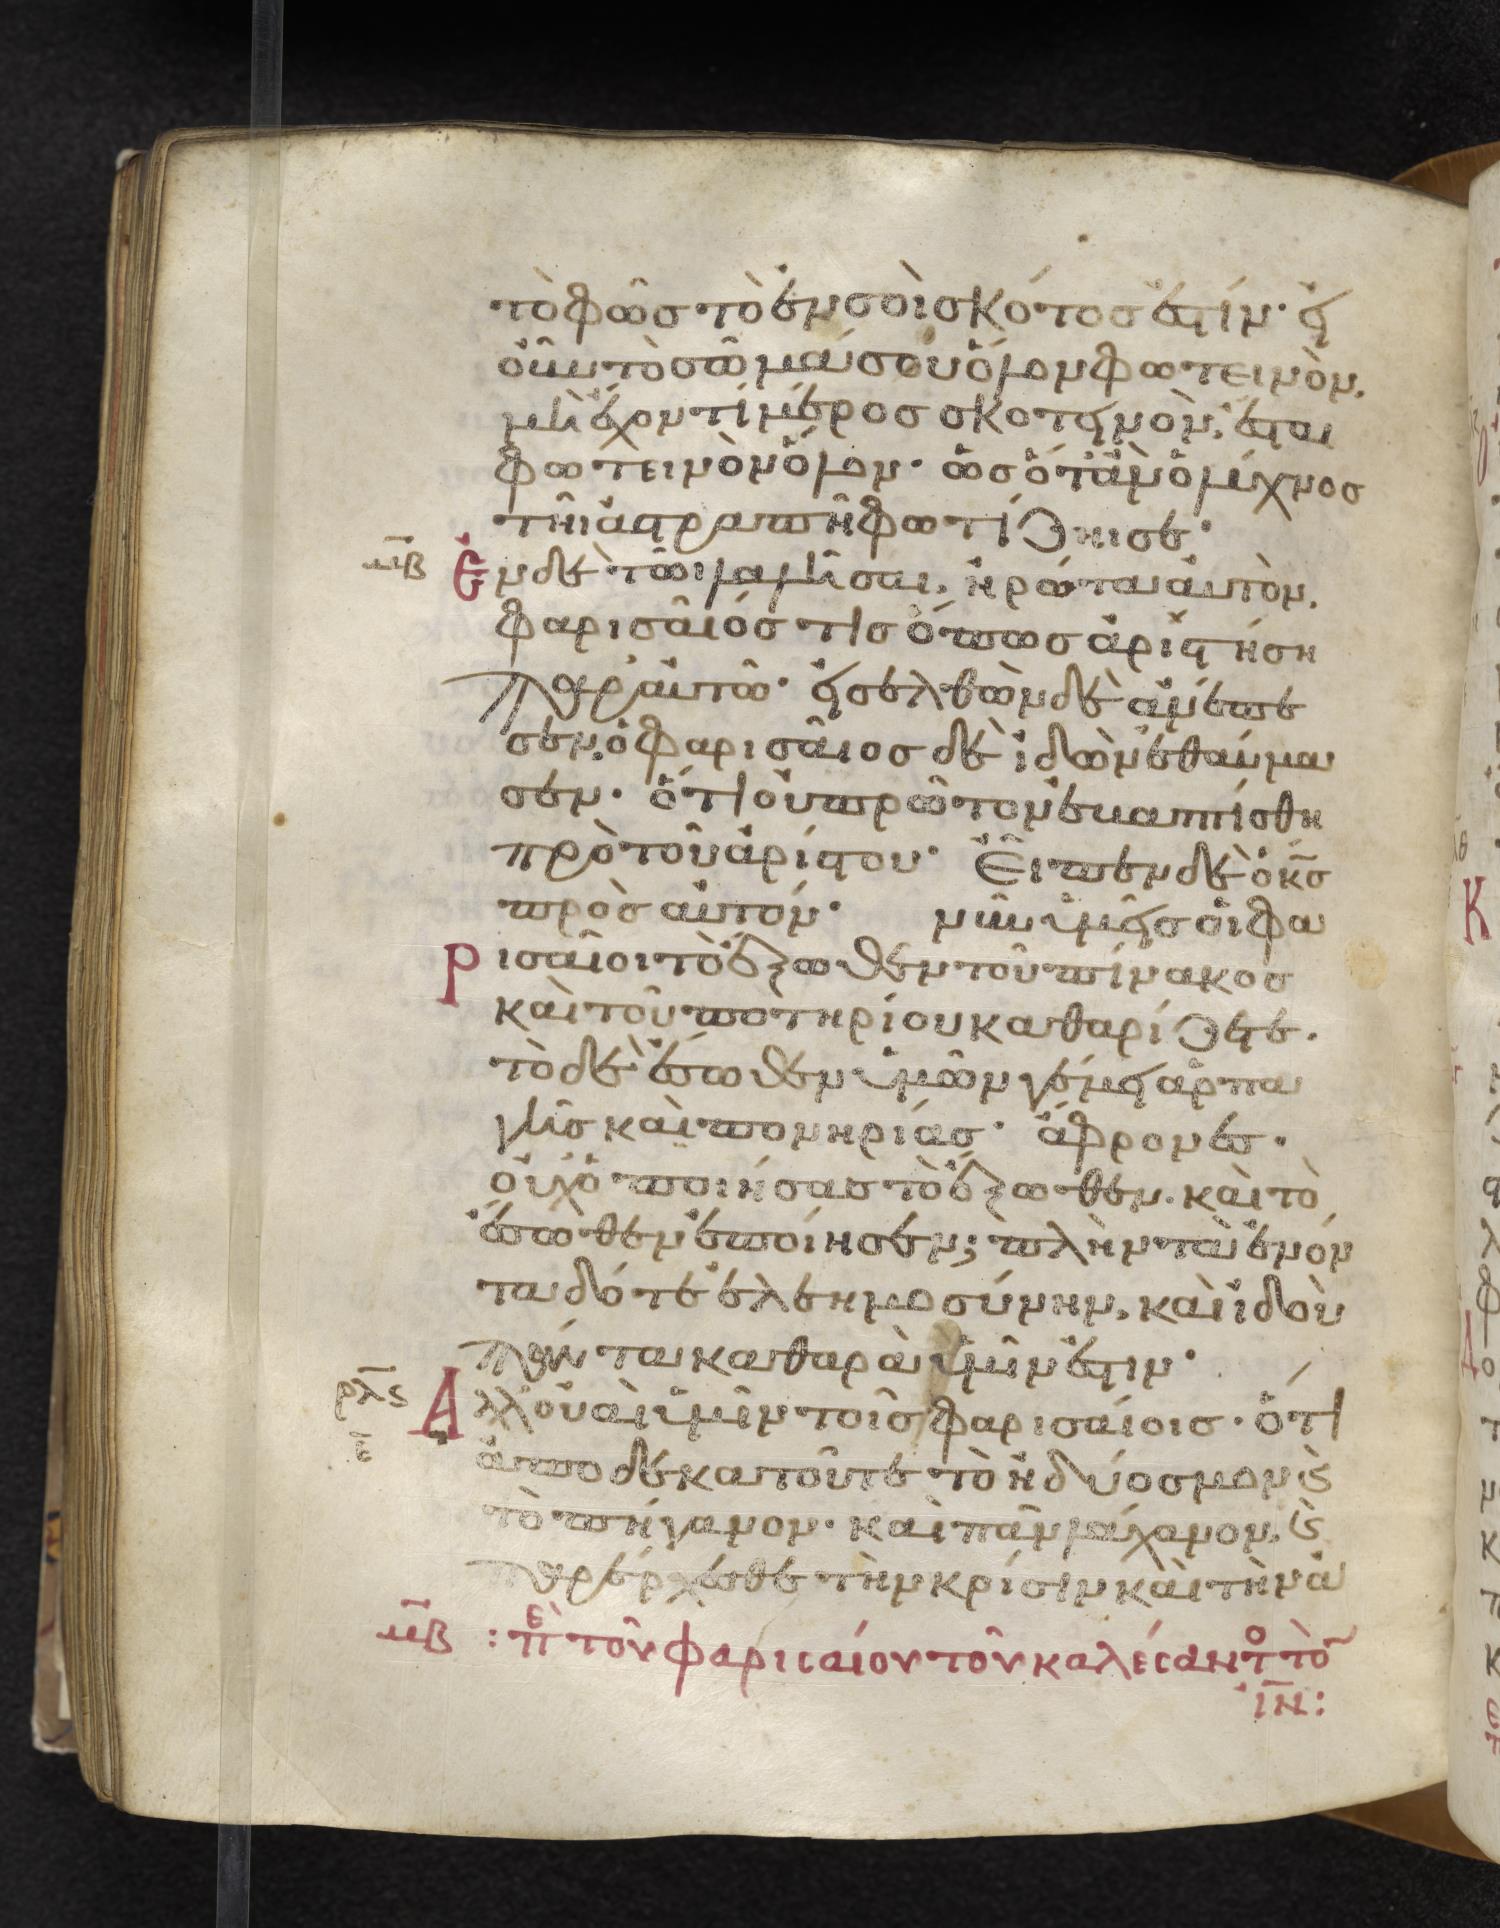 τὸ φῶς τὸ ἐν σοὶ σκότος ἐστίν· εἰ
οὖν τὸ σῶμά σου ὅλον φωτεινὸν,
μὴ ἔχον τὶ μέρος σκοτεινὸν, ἔσται
φωτεινὸν ὅλον· ὡς ὅτἂν ὁ λύχνος
τῆι ἀστραπῆ φωτίζει σε·
μ̅β̅ Ἐν δὲ τῶι λαλῆσαι, ἠρώτα αὐτὸν,
φαρισαῖός τις ὅπως ἀριστήση
παρ' αὐτῶ· εἰσελθὼν δὲ ἀνέπε
σεν, ὁ φαρισαῖος δὲ ἰδὼν ἐθαύμα
σεν· ὅτι οὐ πρῶτον ἐβαπτίσθη
πρὸ τοῦ ἀρίστου· Εἶπεν δὲ ὁ κ̅ς
πρὸς αὐτόν· νῦν ὑμεῖς οἱ φα
ρισαῖοι τὸ ἔξωθεν τοῦ πίνακος
καὶ τοῦ ποτηρίου καθαρίζετε·
τὸ δὲ ἔσωθεν ὑμῶν γέμει ἁρπα
γῆς καὶ πονηρίας· ἄφρονες·
οὐχ ὁ ποιήσας τὸ ἔξωθεν, καὶ τὸ
ἔσωθεν ἐποίησεν; πλὴν τὰ ἐνόν
τα δότε ἐλεημοσύνην, καὶ ἰδοὺ
πάντα καθαρὰ ὑμῖν ἐστιν·
ρ̅λ̅ς Ἀλλ' οὐαὶ ὑμῖν τοῖς φαρισαίοις· ὅτι
ε̅ ἀποδεκατοῦτε τὸ ἡδύοσμον ϗ
τὸ πήγανον· καὶ πᾶν λάχανον, ϗ
παρέρχεσθε τὴν κρίσιν καὶ τὴν ἀ
μ̅β̅ : πὲ τοῦ φαρισαίου τοῦ καλέσαντο τὸ
ἰ̅ν̅: